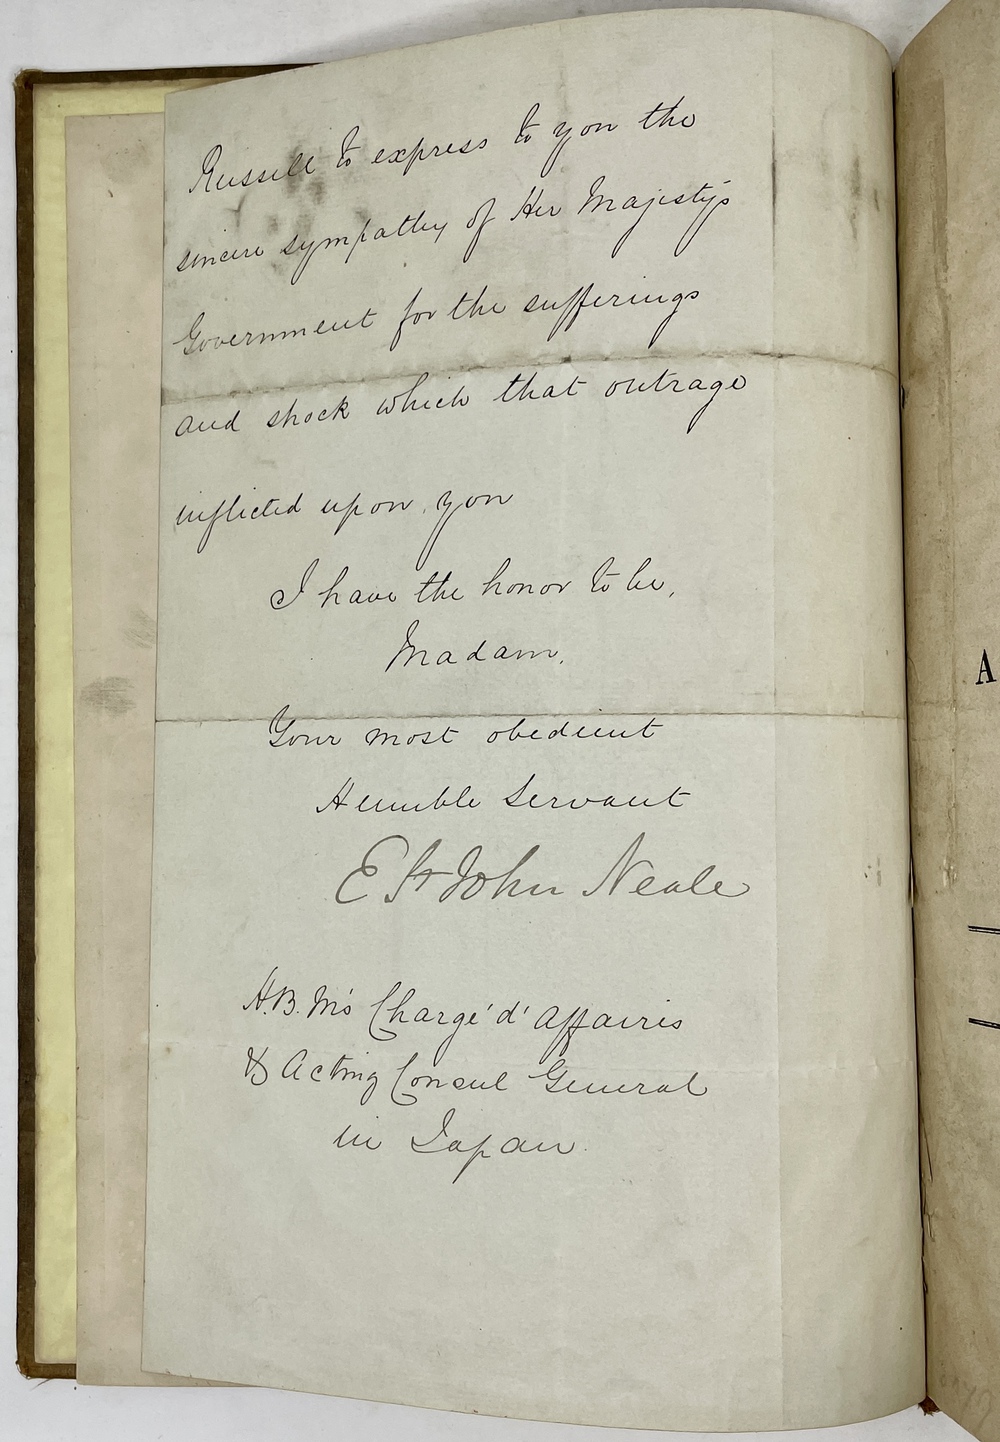 Russell to express to you the
sincere sympathy of Her Majesty's
Government for the sufferings
and shock which that outrage
inflicted upon you
I have the honor to be,
Madam,
Your most obedient
Humble Servant
E St John Neale
H.B.M's Chargé d' Affaires
& Acting Consul General
in Japan.
A